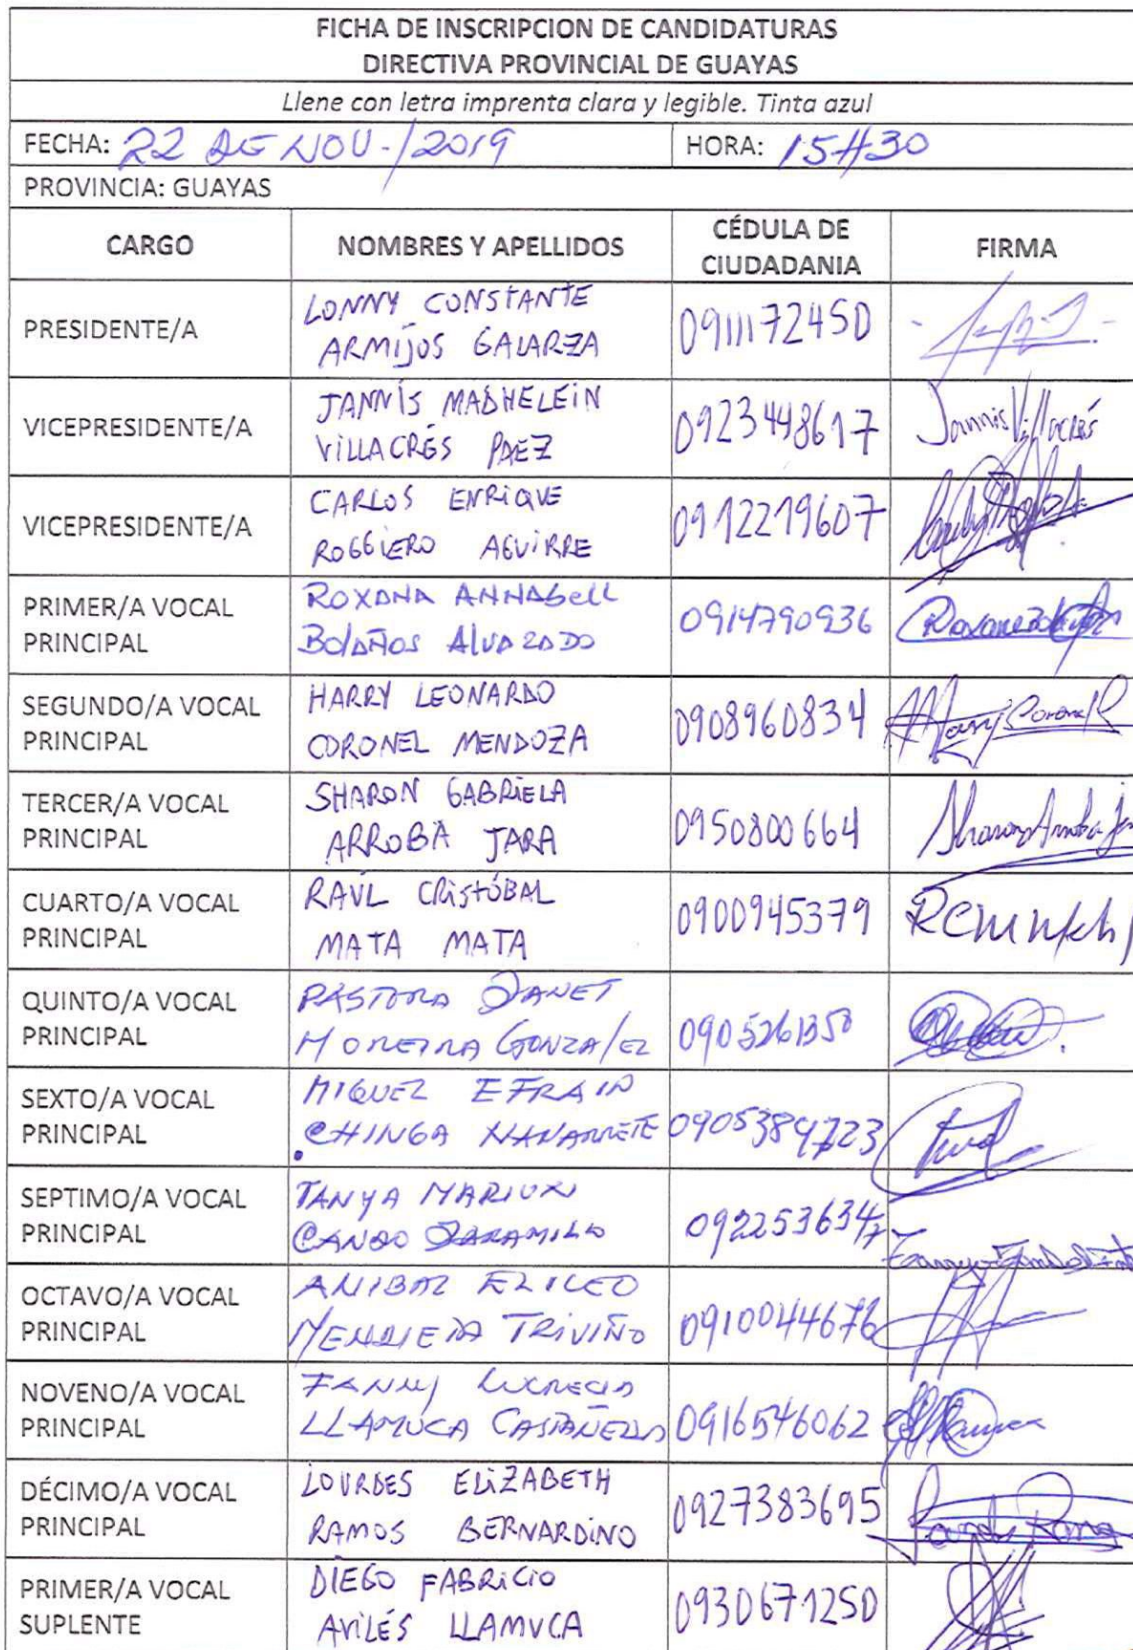 FICHA DE INSCRIPCION DE CANDIDATURAS
DIRECTIVA PROVINCIAL DE GUAYAS
Llene con letra imprenta clara y legible. Tinta azul
FECHA: 22 DE NOV-/2019 HORA: 15H30
PROVINCIA: GUAYAS
CARGO NOMBRES Y APELLIDOS CÉDULA DE CIUDADANIA FIRMA
PRESIDENTE/A LONNY CONSTANTE ARMIJOS GALARZA 0911172450
VICEPRESIDENTE/A JANNIS MADHELEIN VILLACRÉS PAEZ 0923448617 Jannis Villacrés
VICEPRESIDENTE/A CARLOS ENRIQUE ROGGIERO AGUIRRE 0912219607
PRIMER/A VOCAL PRINCIPAL ROXANA ANNABELL BOLAÑOS ALVARADO 0914790936
SEGUNDO/A VOCAL PRINCIPAL HARRY LEONARDO CORONEL MENDOZA 0908960834 Harry Coronel
TERCER/A VOCAL PRINCIPAL SHARON GABRIELA ARROBA JARA 0950800664 Sharon Arroba
CUARTO/A VOCAL PRINCIPAL RAÚL CRISTÓBAL MATA MATA 0900945379
QUINTO/A VOCAL PRINCIPAL PASTORA JANET MOREIRA GONZALEZ
SEXTO/A VOCAL PRINCIPAL MIGUEL EFRAIN CHINGA NAVARRETE 0905389723
SEPTIMO/A VOCAL PRINCIPAL TANYA MARIUXI JARAMILLO 0922536347
OCTAVO/A VOCAL PRINCIPAL ANIBAL ELICEO TRIVIÑO
NOVENO/A VOCAL PRINCIPAL FANNY LUCRECIA LLAMUCA CASTAÑEDA 0916546062
DÉCIMO/A VOCAL PRINCIPAL LOURDES ELIZABETH RAMOS BERNARDINO 0927383695
PRIMER/A VOCAL SUPLENTE DIEGO FABRICIO AVILÉS LLAMUCA 0930671250